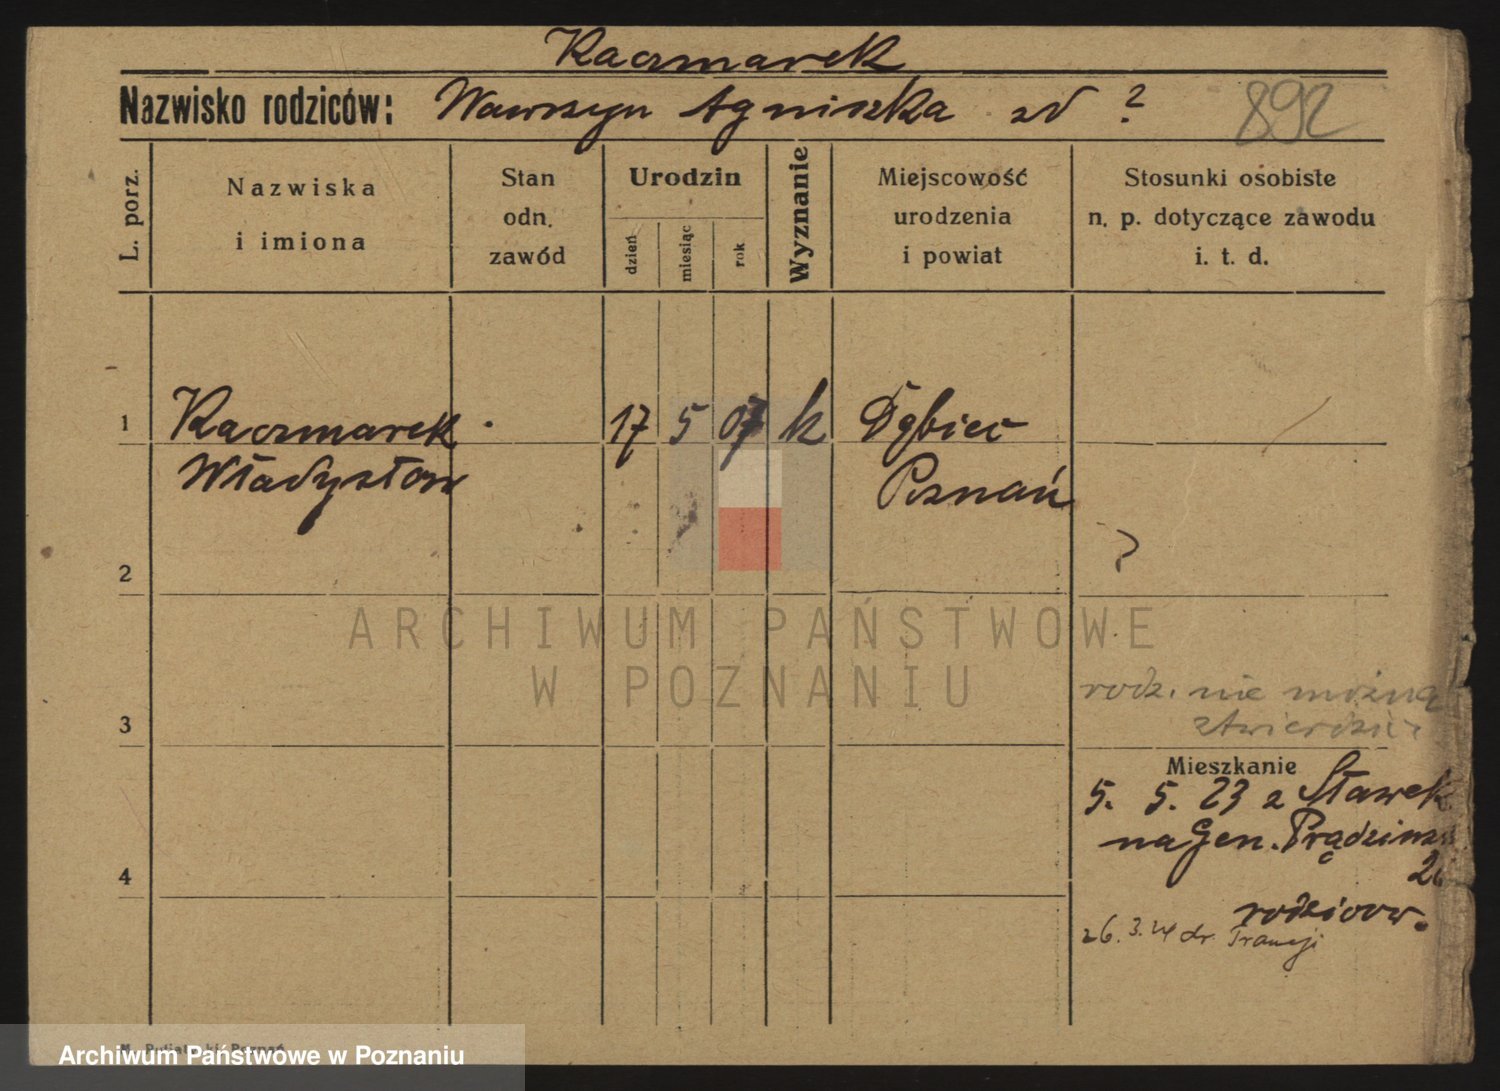 Kaczmarek
Nazwisko rodziców: Wawrzyn Agniszka zd ? 892
L. porz.
Nazwiska
i imiona
Stan
odn.
zawód
Urodzin
dzień
miesiąc
rok
Wyznanie
Miejscowość
urodzenia
i powiat
Stosunki osobiste
n. p. dotyczące zawodu
i. t. d.
1 Kaczmarek 17 5 07 k Dębiec
Władysław Poznań
?
2
rodz. nie można
stwierdzić
3
Mieszkanie
5. 5. 23 z Sławek
na Gen. Prądzins
4
rodziców.
26. 3. 24 do Francji
ARCHIWUM PAŃSTWOWE
W POZNANIU
Archiwum Państwowe w Poznaniu